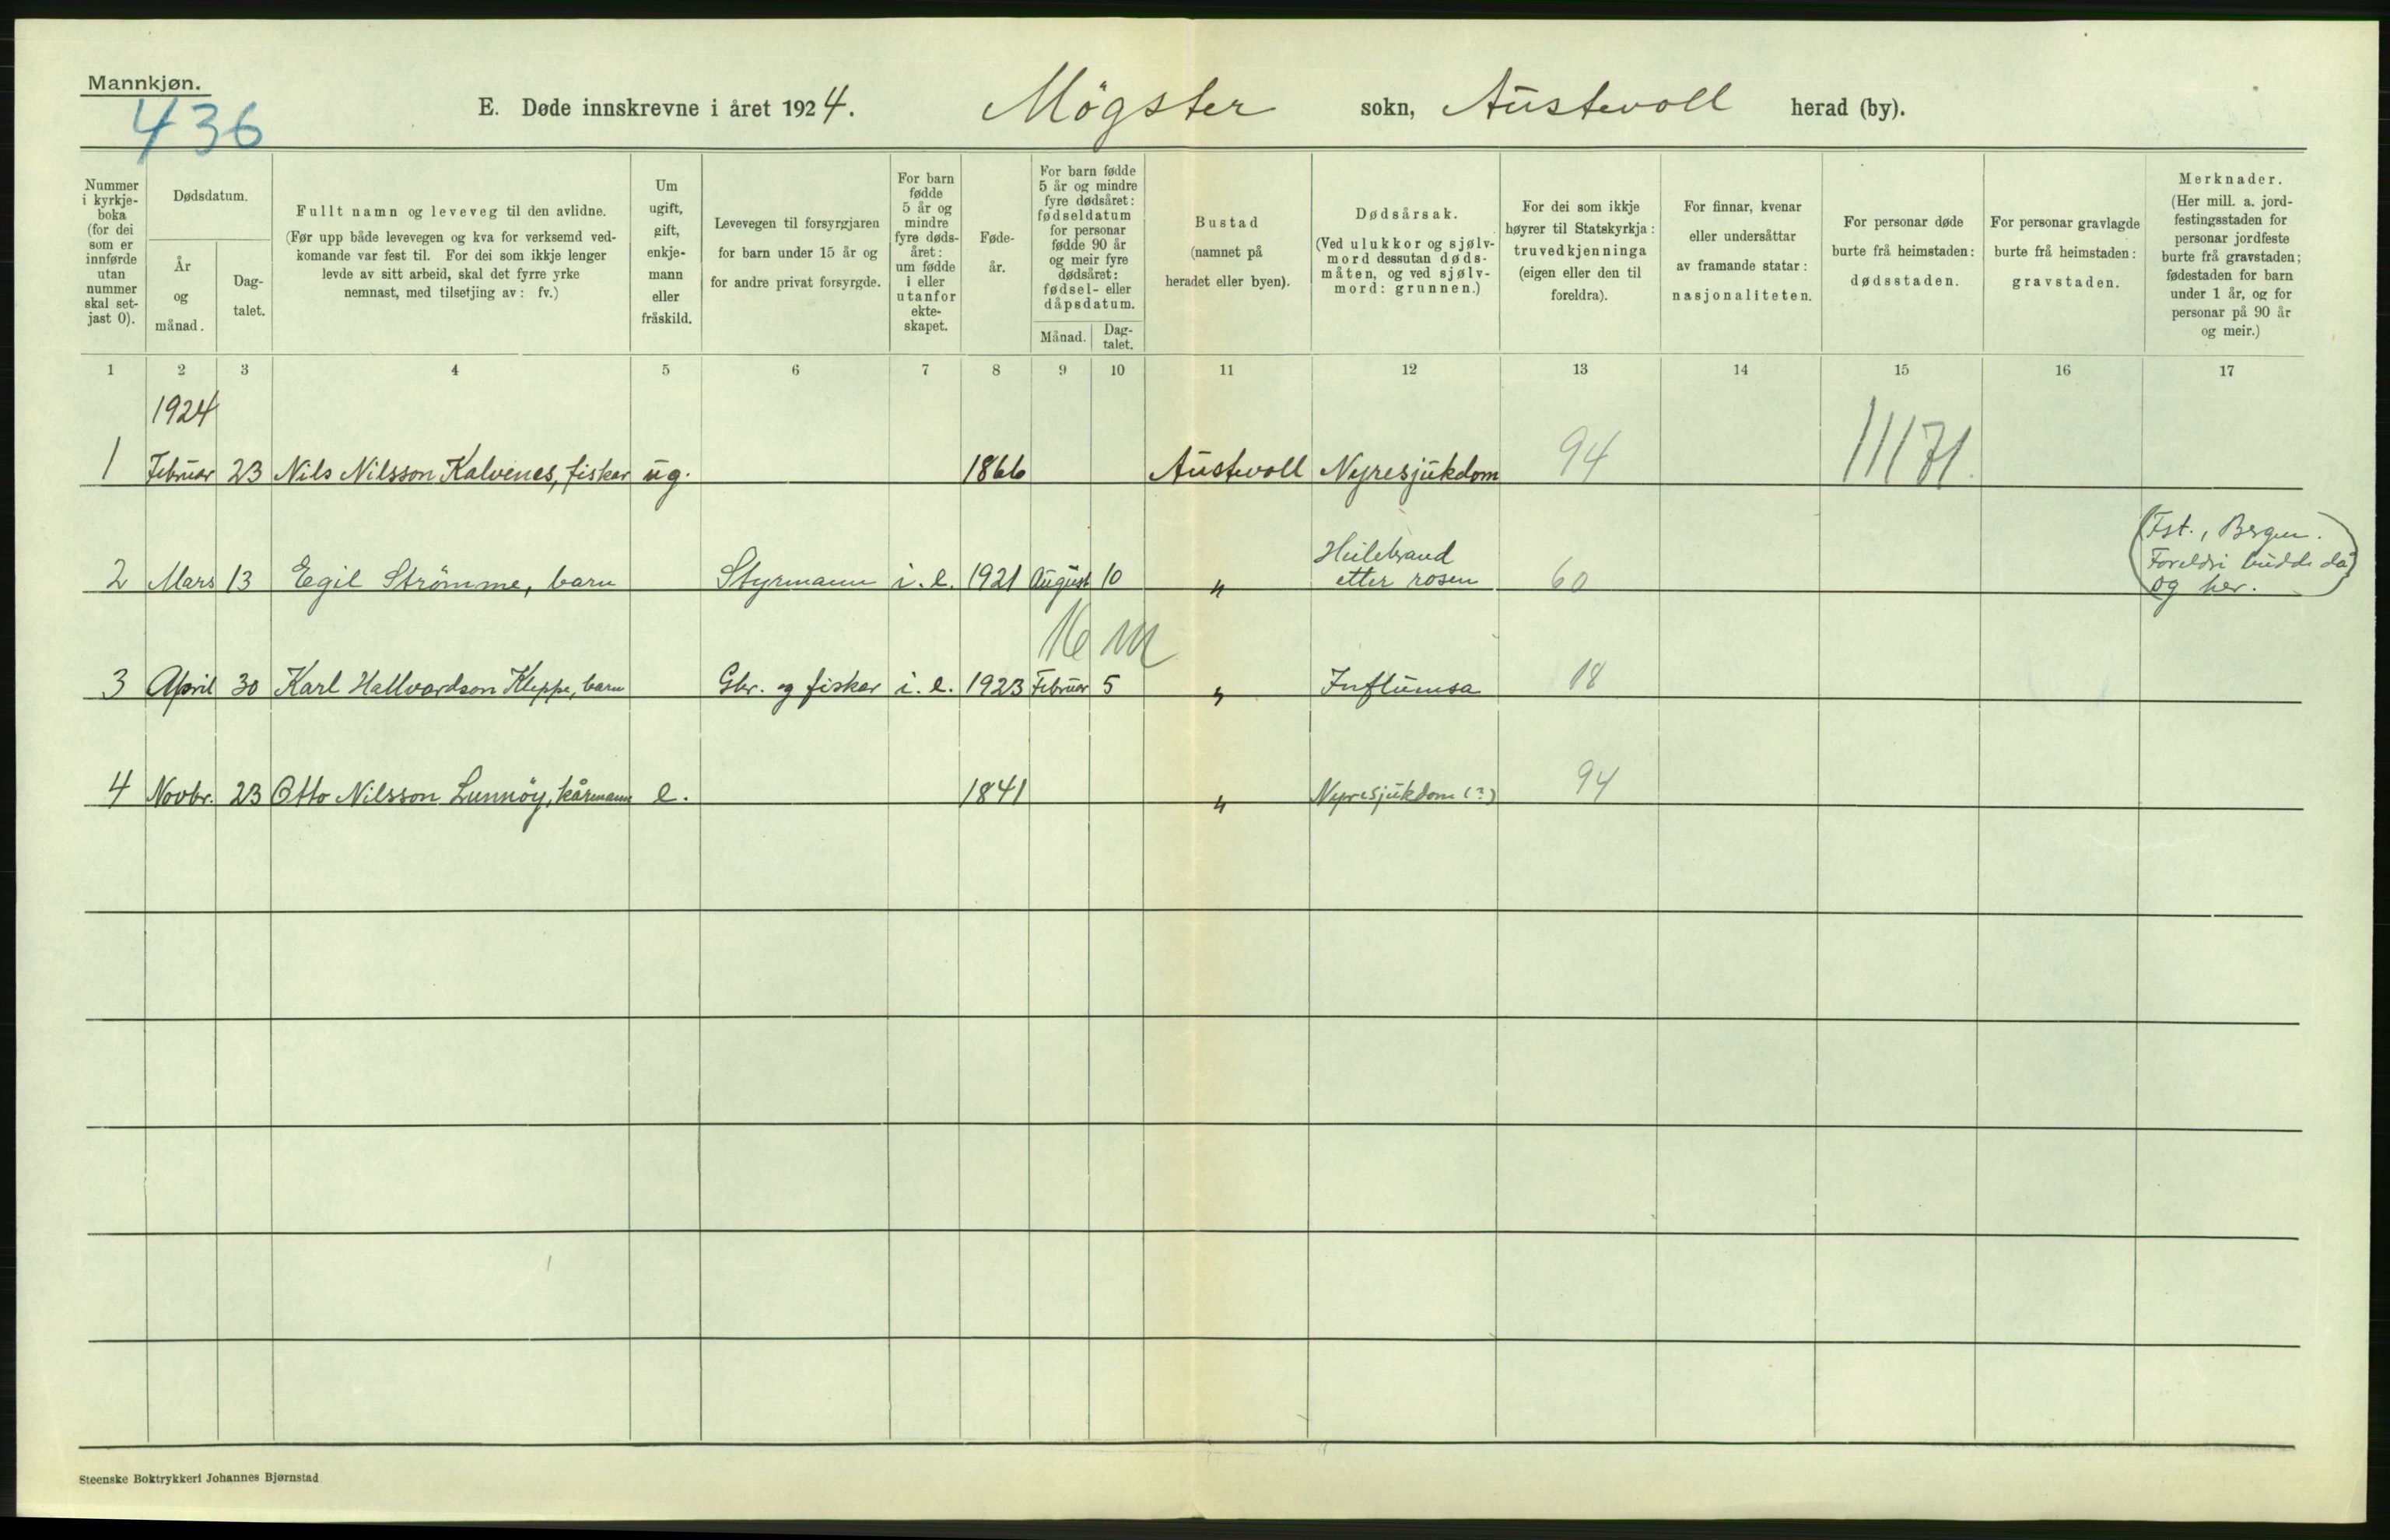 Mannkjøn.
436
E. Døde innskrevne i året 1924. Mögster sokn, Austevoll herad (by).
Nummer i kyrkje-boka (for dei som er innførde utan nummer skal set-jast 0).
Dødsdatum.
År og månad.
Dag-talet.
Fullt namn og leveveg til den avlidne.
(Før upp både levevegen og kva for verksemd ved-
komande var fest til. For dei som ikkje lenger
levde av sitt arbeid, skal det fyrre yrke
nemnast, med tilsetjing av: fv.)
Um ugift, gift, enkje-mann eller fråskild.
Levevegen til forsyrgjaren
for barn under 15 år og
for andre privat forsyrgde.
For barn fødde 5 år og mindre fyre døds-året: um fødde i eller utanfor ekte-skapet.
Føde-år.
For barn fødde 5 år og mindre fyre dødsåret: fødseldatum for personar fødde 90 år og meir fyre dødsåret: fødsel- eller dåpsdatum.
Månad.
Dag-talet.
Bustad
(namnet på
heradet eller byen).
Dødsårsak.
(Ved ulukkor og sjølv-
mord dessutan døds-
måten, og ved sjølv-
mord: grunnen.)
For dei som ikkje
høyrer til Statskyrkja:
truvedkjenninga
(eigen eller den til
foreldra).
For finnar, kvenar
eller undersåttar
av framande statar:
nasjonaliteten.
For personar døde
burte frå heimstaden:
dødsstaden.
For personar gravlagde
burte frå heimstaden:
gravstaden.
Merknader.
(Her mill. a. jord-
festingsstaden for
personar jordfeste
burte frå gravstaden;
fødestaden for barn
under 1 år, og for
personar på 90 år
og meir.)
1 2 3 4 5 6 7 8 9 10 11 12 13 14 15 16 17
1924
1 Februar 23 Nils Nilsson Kalvenes, fiskar ug. 1866 Austevoll Nyresjukdom 94
2 Mars 13 Egil Strömme, barn Styrmann i. e. 1921 August 10 " Heilebrand etter rosen 60
(Fst., Bergen.
Foreldri budde då
og her.)
3 April 30 Karl Hallvardson Kleppe, barn Gbr. og fiskar i. e. 1923 Februar 5 " Influensa 18
4 Novbr. 23 Otto Nilsson Lunnöy, kårmann e. 1841 " Nyresjukdom (?) 94
Steenske Boktrykkeri Johannes Bjørnstad